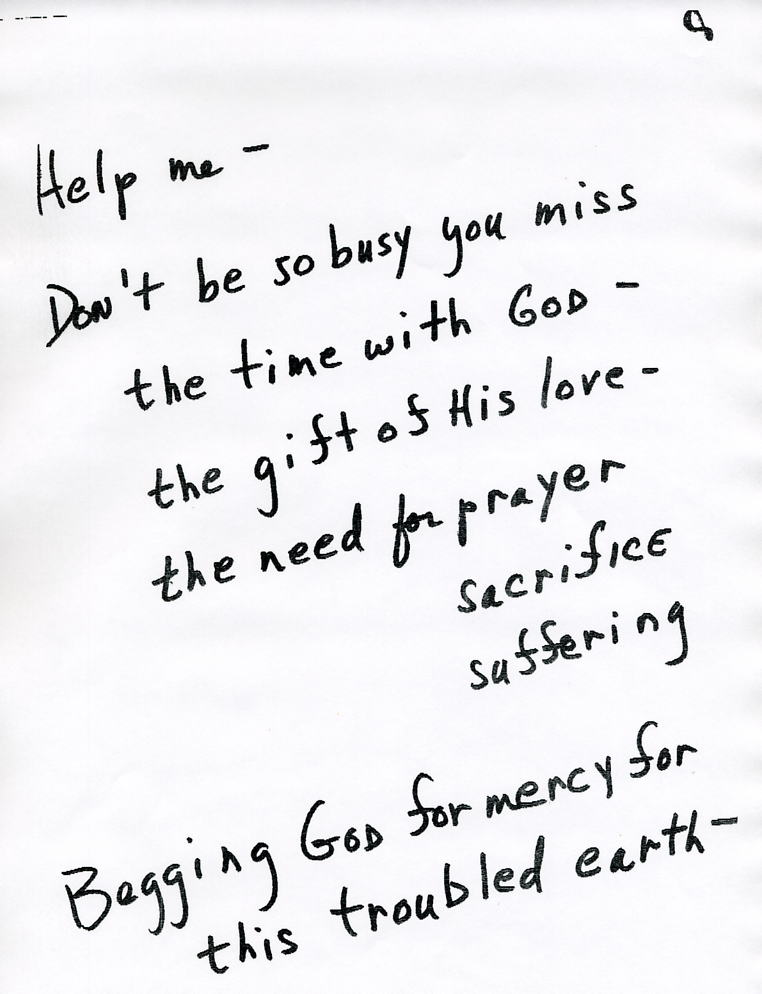 Help me -
Don't be so busy you miss
the time with GOD -
the gift of His love -
the need for prayer
sacrifICE
suffering
Begging GOD for mercy for
this troubled earth -